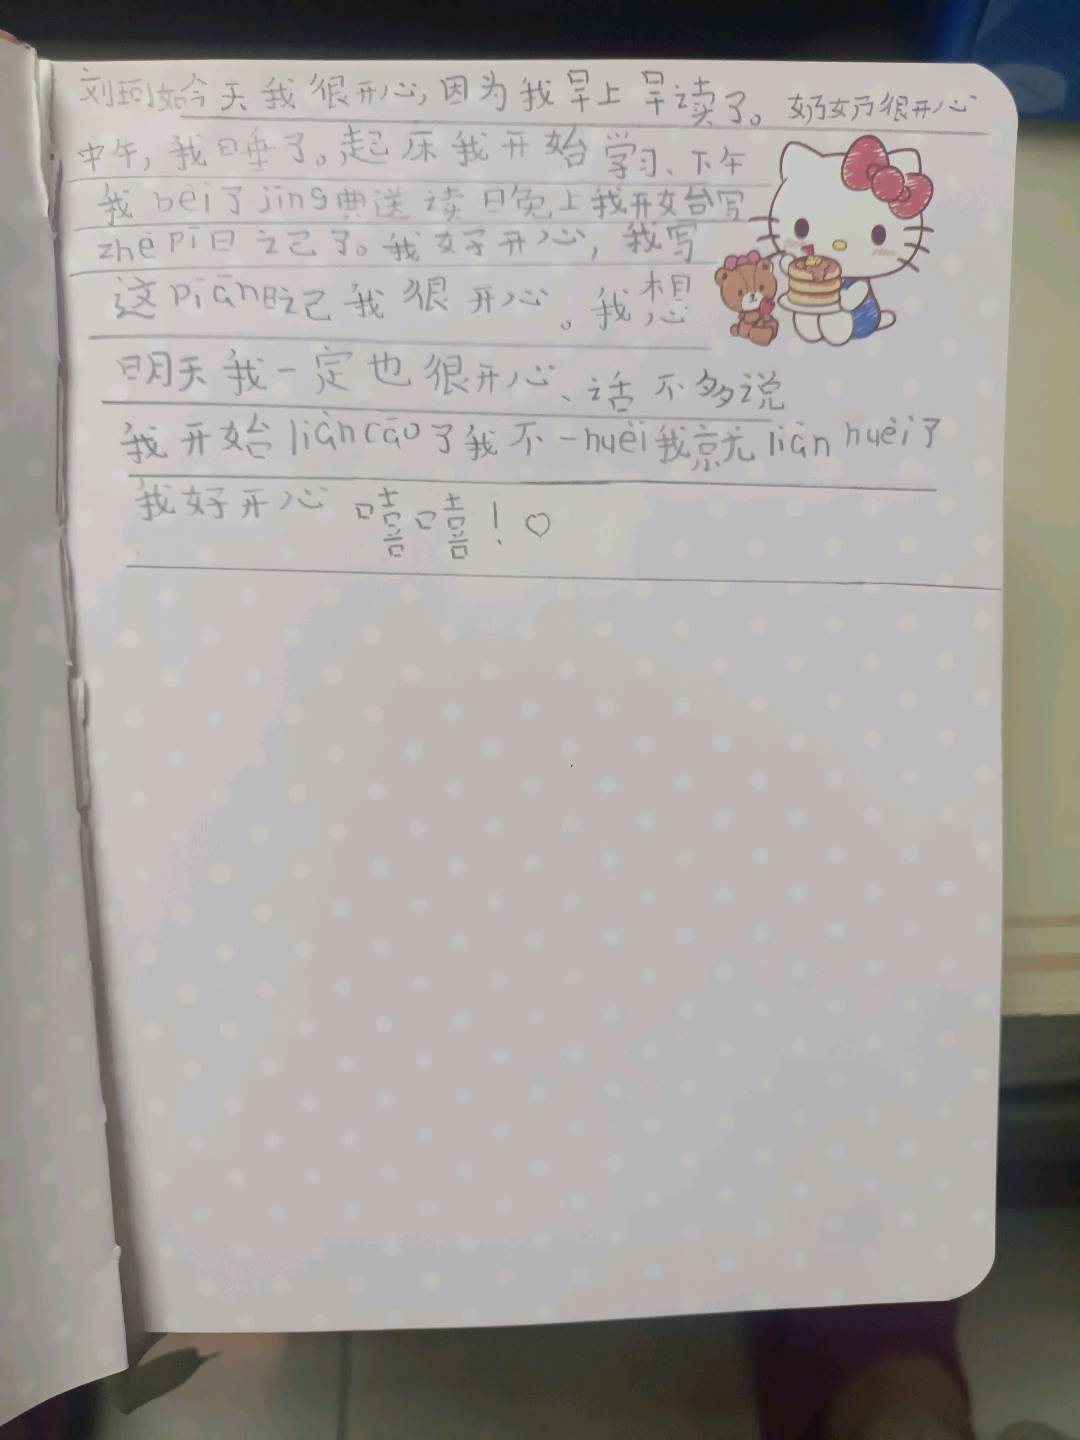 刘珂如今天我很开心,因为我早上早读了。奶奶很开心
中午,我睡了。起床我开始学习、下午
我bèi了jīng典送读晚上我开始写
zhè pī日记了。我好开心,我写
这piān日记我很开心。我想
明天我一定也很开心、话不多说
我开始liàn cāo了我不一huèi我就liàn huèi了
我好开心嘻嘻!♡